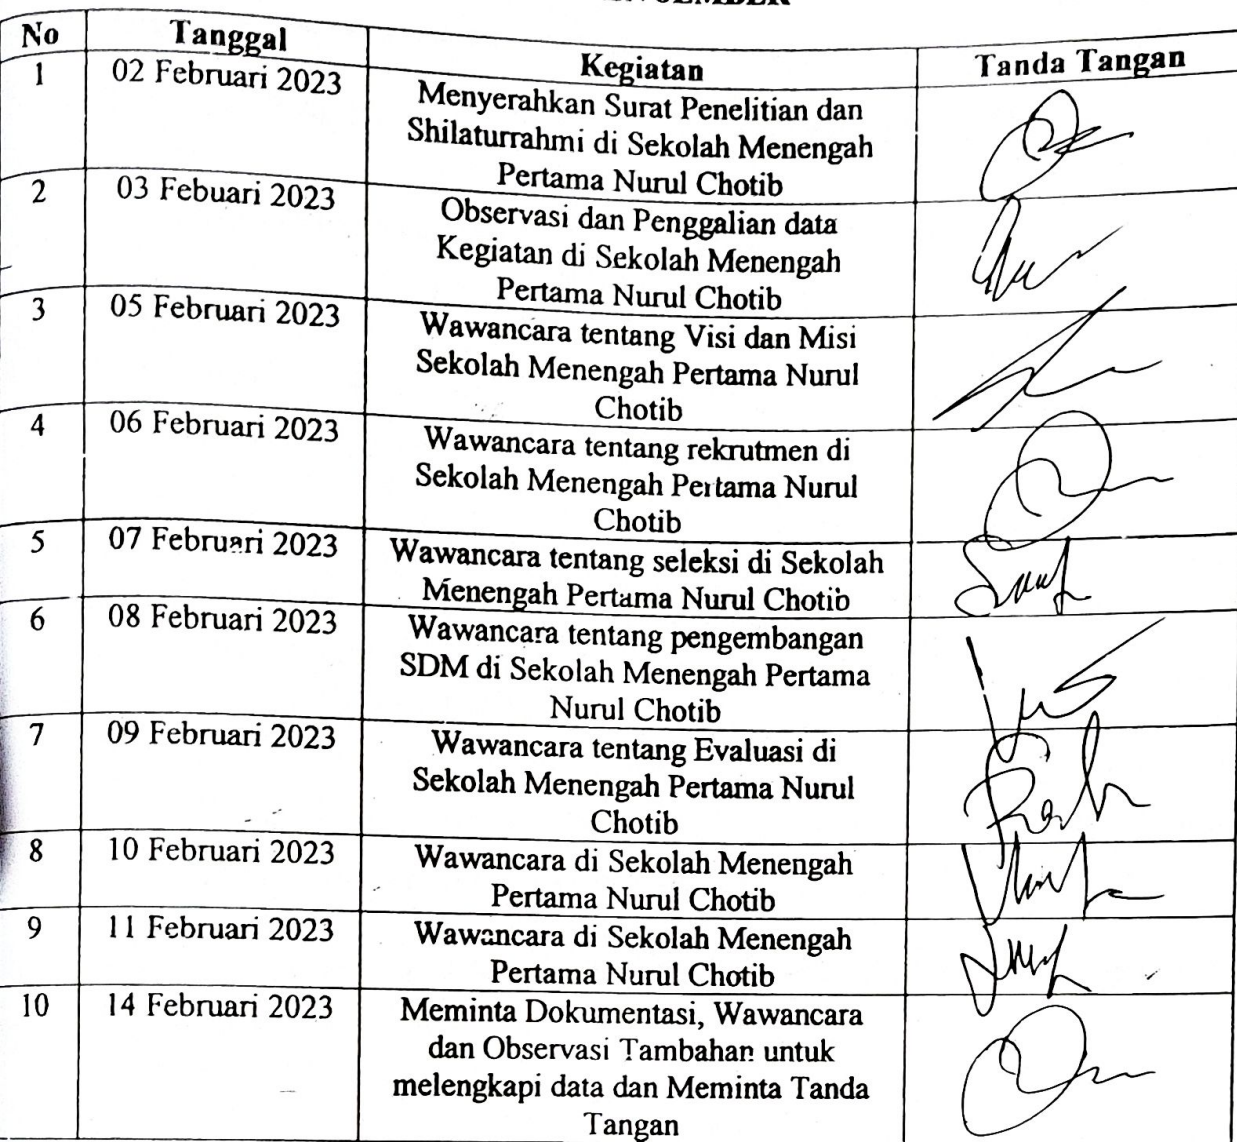 No Tanggal Kegiatan Tanda Tangan
1 02 Februari 2023 Menyerahkan Surat Penelitian dan
Shilaturrahmi di Sekolah Menengah
Pertama Nurul Chotib
2 03 Febuari 2023 Observasi dan Penggalian data
Kegiatan di Sekolah Menengah
Pertama Nurul Chotib
3 05 Februari 2023 Wawancara tentang Visi dan Misi
Sekolah Menengah Pertama Nurul
Chotib
4 06 Februari 2023 Wawancara tentang rekrutmen di
Sekolah Menengah Pertama Nurul
Chotib
5 07 Februari 2023 Wawancara tentang seleksi di Sekolah
Menengah Pertama Nurul Chotib
6 08 Februari 2023 Wawancara tentang pengembangan
SDM di Sekolah Menengah Pertama
Nurul Chotib
7 09 Februari 2023 Wawancara tentang Evaluasi di
Sekolah Menengah Pertama Nurul
Chotib
8 10 Februari 2023 Wawancara di Sekolah Menengah
Pertama Nurul Chotib
9 11 Februari 2023 Wawancara di Sekolah Menengah
Pertama Nurul Chotib
10 14 Februari 2023 Meminta Dokumentasi, Wawancara
dan Observasi Tambahan untuk
melengkapi data dan Meminta Tanda
Tangan